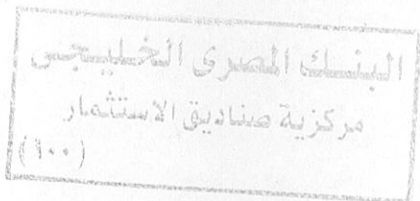 البنك المصرى الخليجى
مركزية صناديق الاستثمار
(٦٠٠)